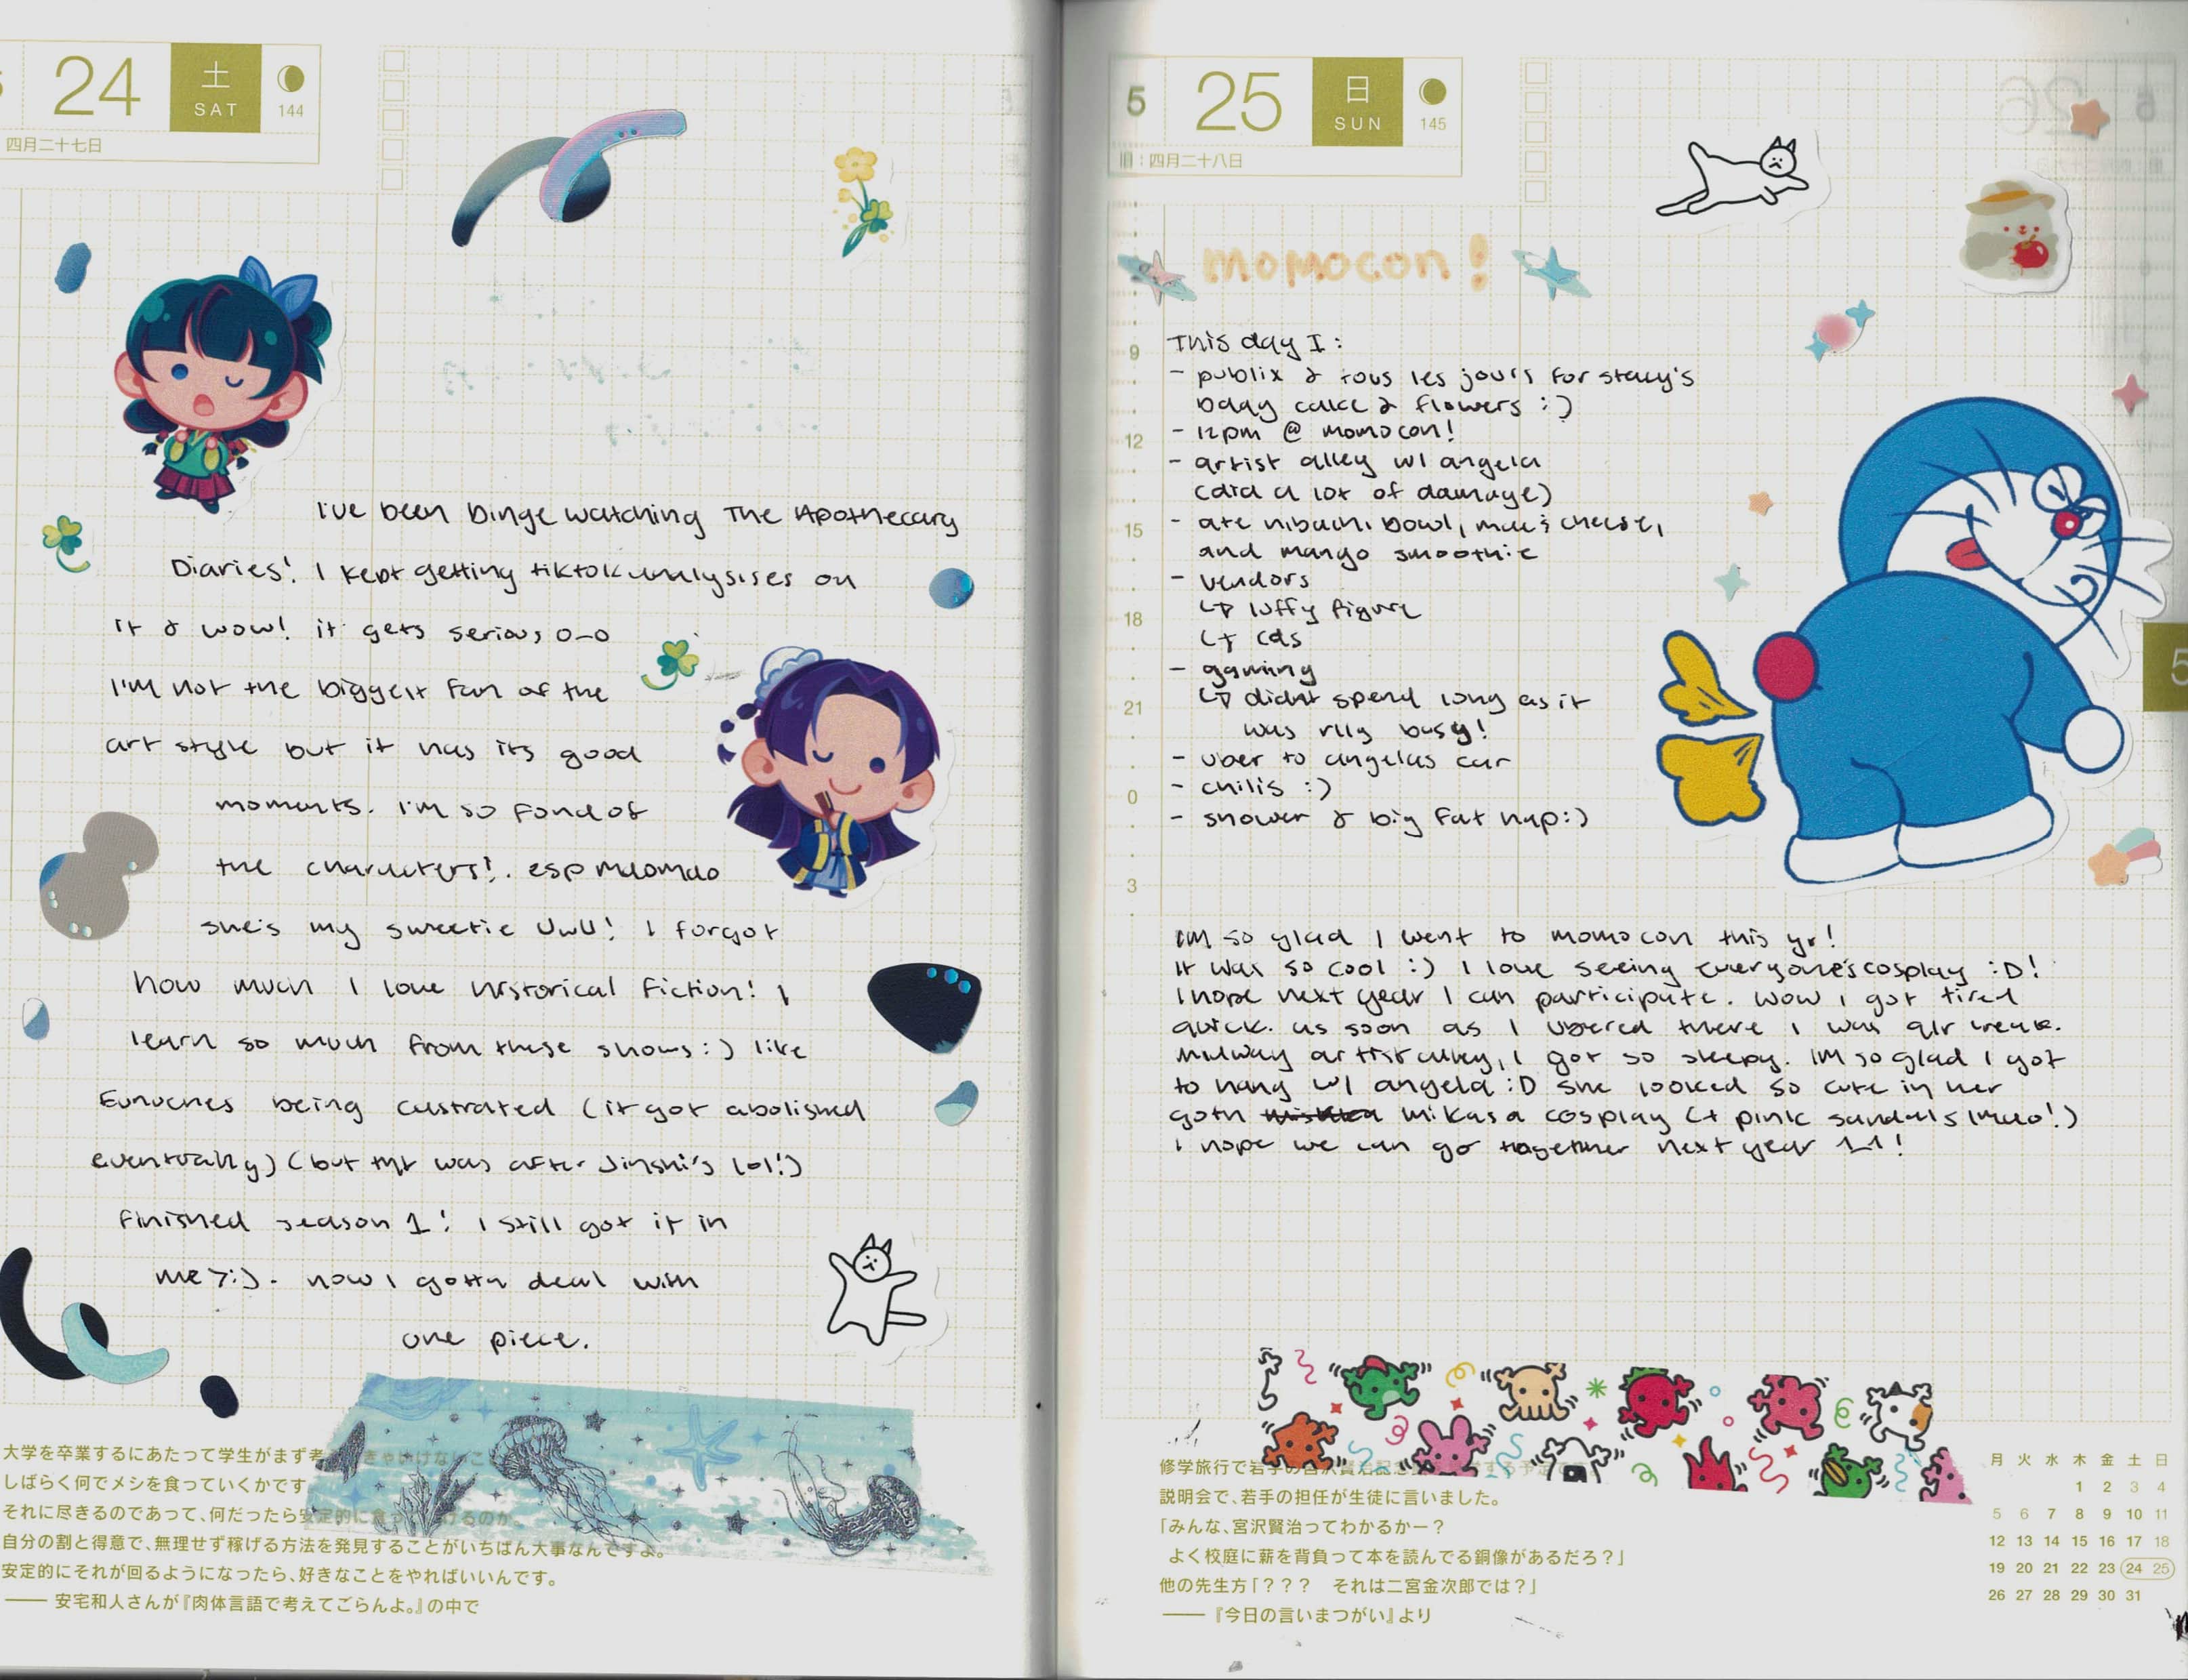 24
土
SAT
144
四月二十七日
I've been binge watching The Apothecary
Diaries! I kept getting tiktok analysises on
it & wow! it gets serious o_o
I'm not the biggest fan of the
art style but it has its good
moments. I'm so fond of
the characters!. esp maomao
she's my sweetie UwU! I forgot
how much I love historical fiction! I
learn so much from these shows :) like
Eunuches being castrated (it got abolished
eventually) (but tht was after Jinshi's lol!)
Finished season 1! I still got it in
me >:). now I gotta deal with
one piece.
大学を卒業するにあたって学生がまず考
しばらく何でメシを食っていくかです
それに尽きるのであって、何だったら安定的に食っ
自分の割と得意で、無理せず稼げる方法を発見することがいちばん大事なんですよ。
安定的にそれが回るようになったら、好きなことをやればいいんです。
—— 安宅和人さんが『肉体言語で考えてごらんよ。』の中で
5
25
日
SUN
145
旧:四月二十八日
momocon!
This day I:
- publix & tous les jours for stacy's
bday cake & flowers :)
- 12pm @ momocon!
- artist alley w/ angela
(did a lot of damage)
- ate hibachi bowl, mac & cheese,
and mango smoothie
- vendors
↳ luffy figure
↳ cds
- gaming
↳ didnt spend long as it
was rlly busy!
- uber to angelas car
- chilis :)
- shower & big fat nap :)
9
12
15
18
21
0
3
5
IM so glad I went to momocon this yr!
It was so cool :) I love seeing everyone's cosplay :D!
I hope next year I can participate. wow I got tired
quick. as soon as I ubered there I was alr weak.
Midway artist alley, I got so sleepy. IM so glad I got
to hang w/ angela :D she looked so cute in her
goth mikasa cosplay (+ pink sandals lmao!)
I hope we can go together next year !
修学旅行で若手の宮沢賢治記念
説明会で、若手の担任が生徒に言いました。
「みんな、宮沢賢治ってわかるかー?
よく校庭に薪を背負って本を読んでる銅像があるだろ?」
他の先生方「??? それは二宮金次郎では?」
——『今日の言いまつがい』より
月 火 水 木 金 土 日
1 2 3 4
5 6 7 8 9 10 11
12 13 14 15 16 17 18
19 20 21 22 23 24 25
26 27 28 29 30 31